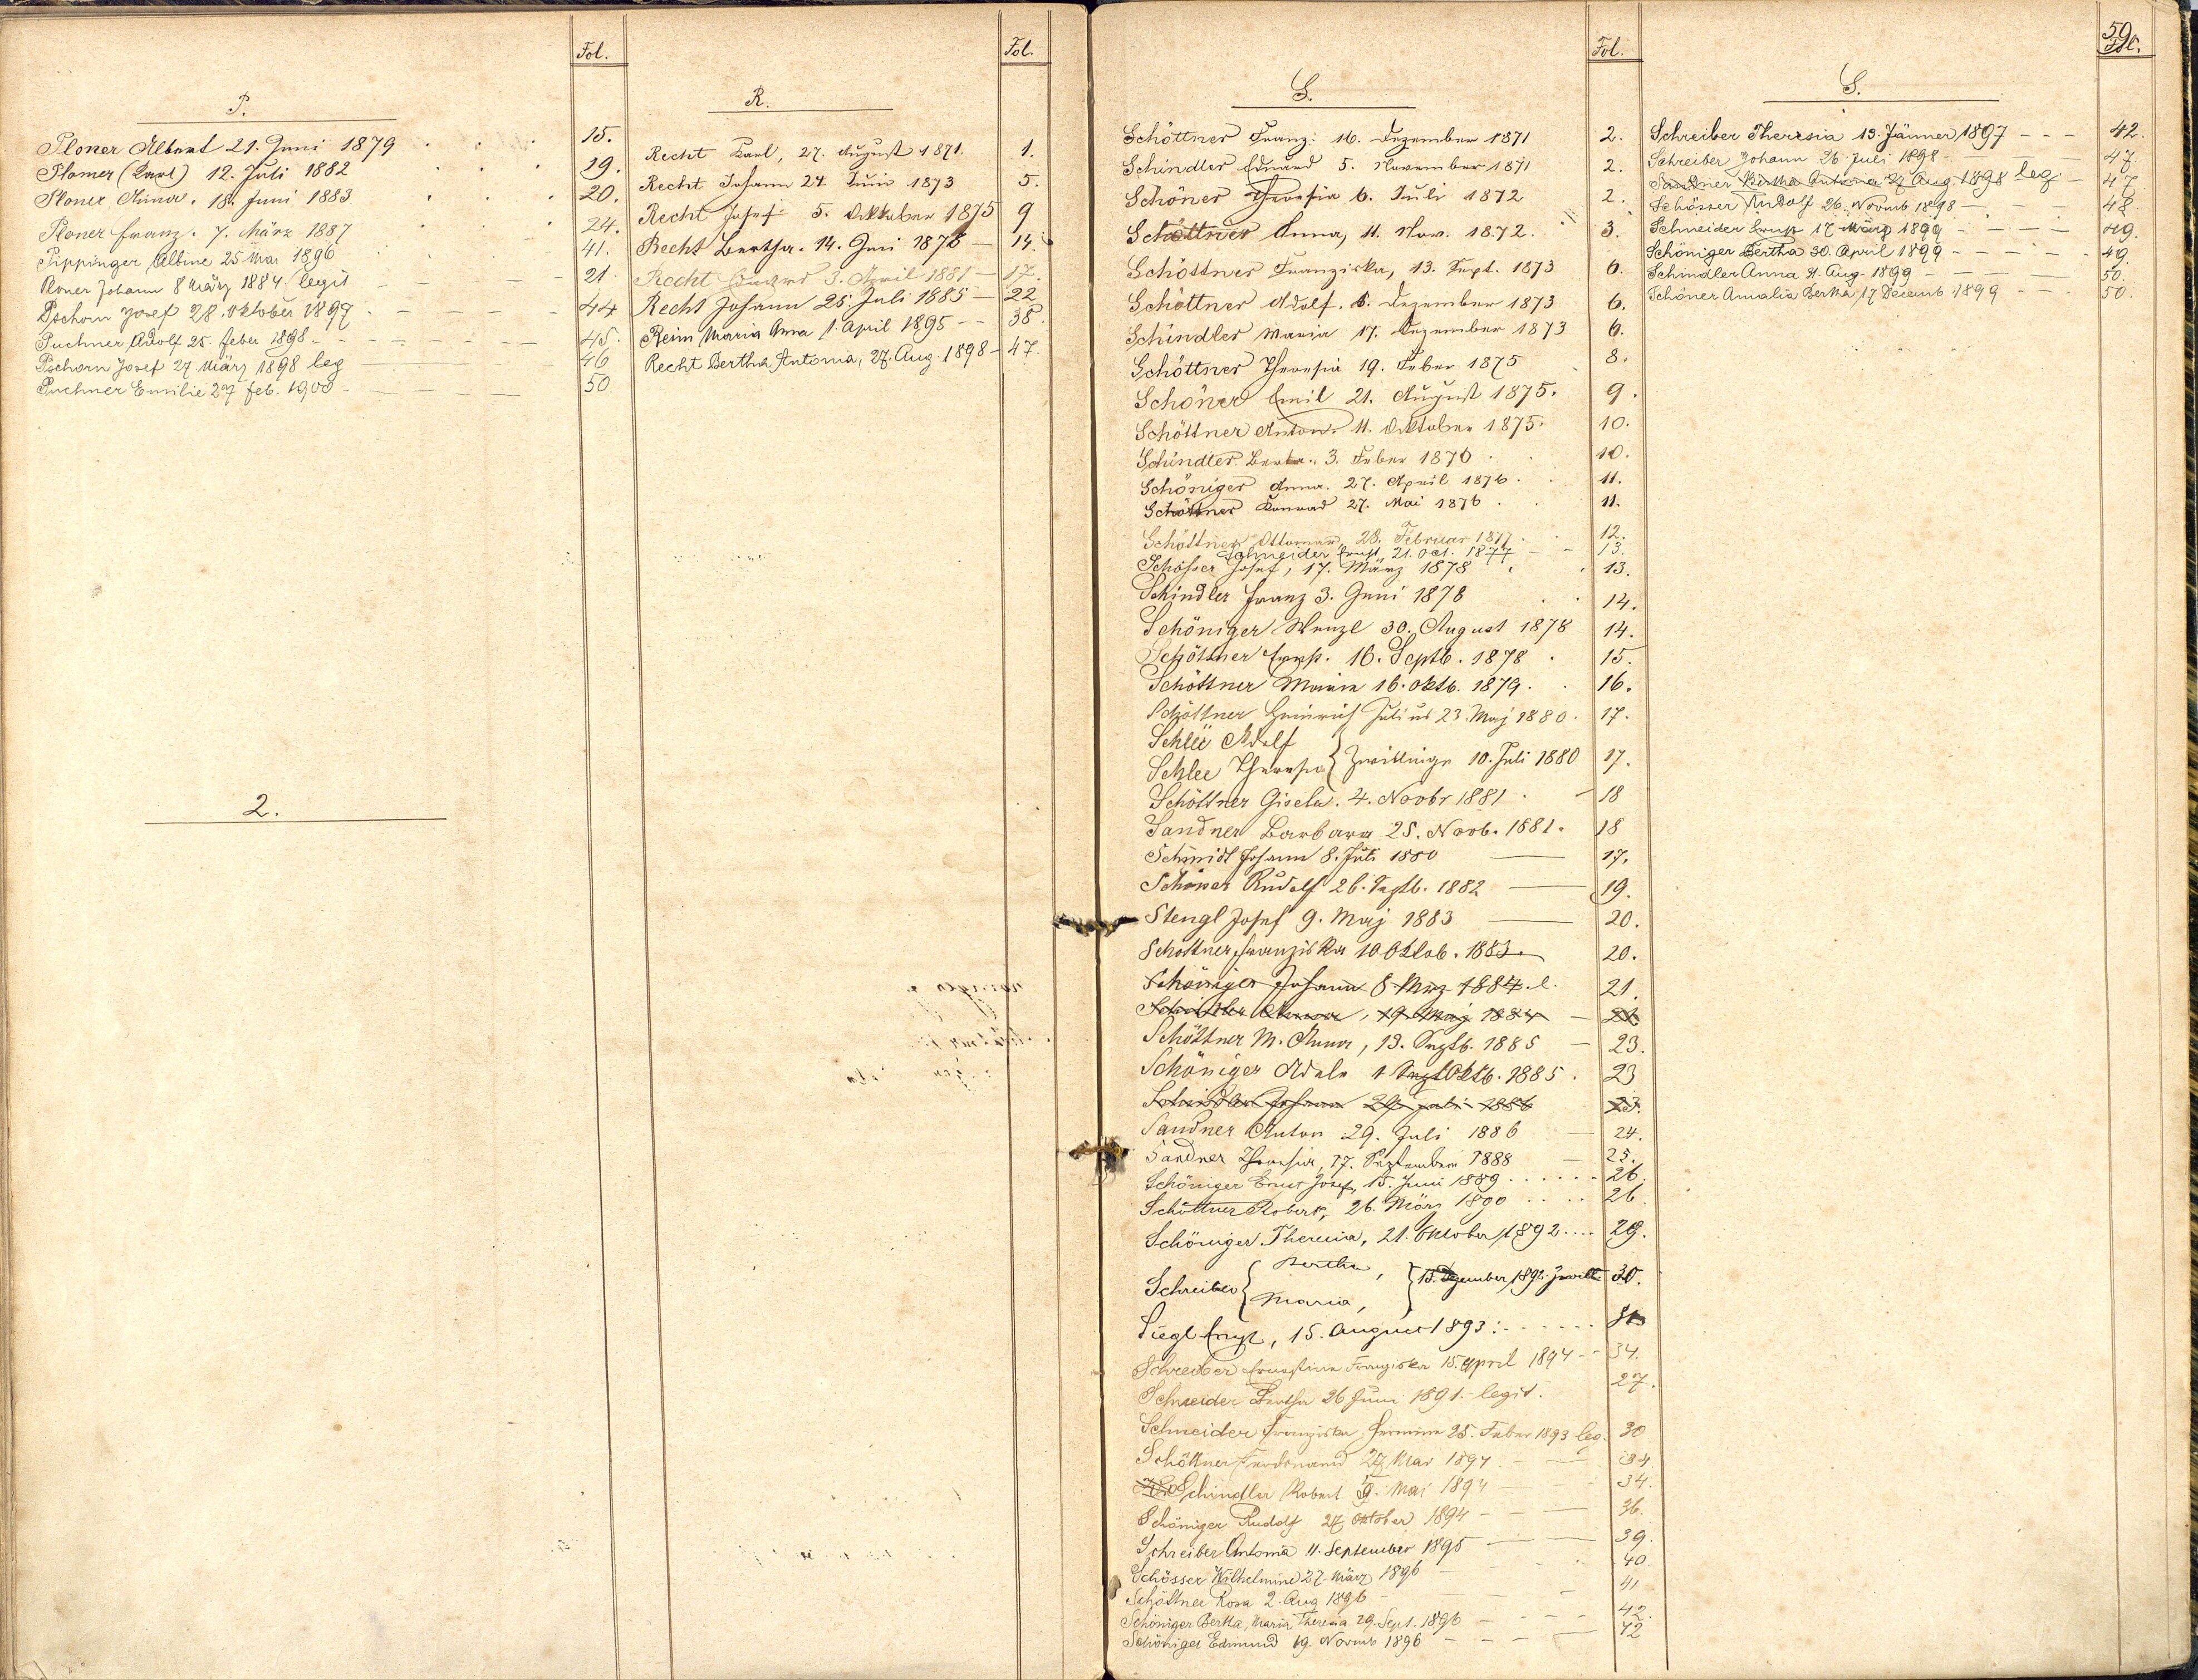 Fol.
P.
Ploner Albert 21. Juni 1879 15.
Plomer (Karl) 12. Juli 1882 19.
Ploner Anna. 18. Juni 1883 20.
Ploner Franz. 7. März 1887 24.
Pippinger Albine 25 Mai 1896 41.
Ploner Johann 8 März 1884 legit 21.
Pschorn Josef 28. Oktober 1897 44
Puchner Adolf 25. Feber 1898 45.
Pschorn Josef 27 März 1898 leg 46
Puchner Emilie 27 feb. 1900 50.
2.
Fol.
R.
Recht Karl, 27. August 1871. 1.
Recht Johann 24 Juni 1873 5.
Recht Josef 5. Oktober 1875 9
Recht Bertha. 14. Juni 1878 14.
Recht 3. April 1881 17.
Recht Johann 25. Juli 1885 22
Reim Maria Anna 1. April 1895 38.
Recht Bertha Antonia, 27. Aug. 1898 47.
Fol.
S.
Schöttner Franz: 16. Dezember 1871 2.
Schindler Eduard 5. November 1871 2.
Schöner Theresia 6. Juli 1872 2.
Schöttner Anna, 11. Nov. 1872. 3.
Schöttner Franziska, 13. Sept. 1873 6.
Schöttner Adolf. 8. Dezember 1873 6.
Schindler Maria 17. Dezember 1873 6.
Schöttner Theresia 19. Feber 1875 8.
Schöner Emil 21. August 1875. 9.
Schöttner Anton. 11. Oktober 1875. 10.
Schindler Berta. 3. Feber 1876 10.
Schöniger Anna. 27. April 1876. 11.
Schöttner Konrad 27. Mai 1876. 11.
Schöttner Ottomar, 28. Februar 1877. 12.
Schneider Ernst, 21. Oct. 1877 13.
Schösser Josef, 17. März 1878 13.
Schindler Franz 3. Juni 1878 14.
Schöniger Wenzl 30. August 1878 14.
Schöttner Ernst. 16. Septb. 1878. 15.
Schöttner Maria 16. Oktb. 1879. 16.
Schöttner Heinrich Julius 23. Maj 1880. 17.
Schlee Adolf
Schlee Theresia } Zwillinge 10. Juli 1880 17.
Schöttner Gisela. 4. Novbr 1881. 18
Sandner Barbara 25. Novb. 1881. 18
Schmidt Johann 8. Juli 1880 17.
Schöner Rudolf 26. Septb. 1882 19.
Stengl Josef 9. Maj 1883 20.
Schöttner, Franziska 10 Oktob. 1883. 20.
Schöniger Johann 8 März 1884. l. 21.
Schindler Anna, 19. Maj 1884 21
Schöttner M. Anna, 13. Septb. 1885 23.
Schöniger Adele 1 Sept Oktb. 1885. 23
Schindler Johann 29. Juli 1886 23.
Sandner Anton 29. Juli 1886 24.
Sandner Theresia, 17. September 1888 25.
Schöniger Ernst Josef, 15. Juni 1889 26.
Schöttner Robert, 26. März 1890 26.
Schöniger Theresia, 21. Oktober 1892 29.
Schreiber { Bertha, Maria, } 13. Dezember 1892 Zwill 30.
Siegl Ernst, 15. August 1893
Schreiber Ernestine Franziska 15. April 1894 34.
Schneider Bertha 26 Juni 1891. legit. 27.
Schneider Franziska Hermine 25. Feber 1893 leg. 30
Schöttner Ferdinand 27 Mai 1894 34
Schindler Robert 9. Mai 1894 34.
Schöniger Rudolf 27 Oktober 1894 36.
Schreiber Antonia 11. September 1895 39.
Schösser Wilhelmine 27. März 1896 40
Schöttner Rosa 2. Aug 1896 41
Schöniger Bertha, Maria Theresia 29. Sept. 1896 42.
Schöniger Edmund 19. Novmb 1896 42
50
Fol.
S.
Schreiber Theresia 13. Jänner 1897 42.
Schreiber Johann 26. Juli 1898 47.
Sandner Bertha Antonia 27 Aug. 1898 leg. 47
Schösser Rudolf 26. Novmb 1898 48
Schneider Ernst 17 März 1899 49.
Schöniger Bertha 30. April 1899 49.
Schindler Anna 21. Aug. 1899 50.
Schöner Amalia Bertha, 17 Decemb 1899 50.